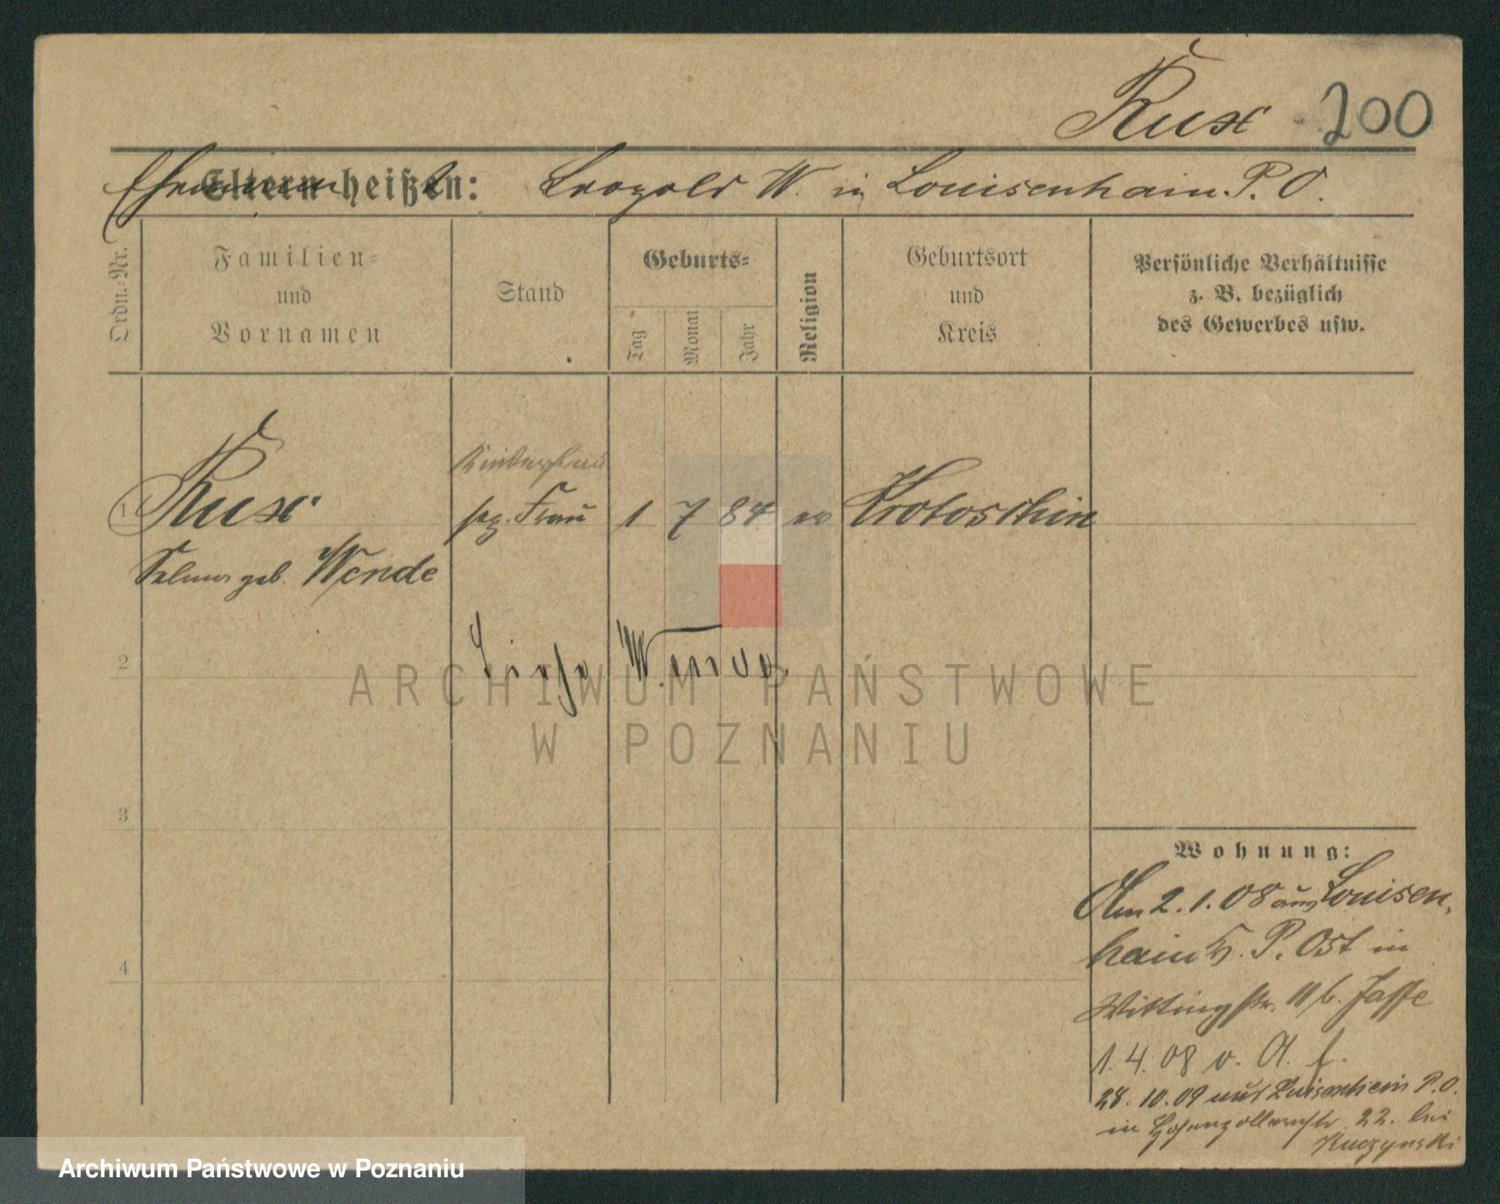 Rux 200
Ehemann Eltern heißen: Leopold W. in Louisenhain P. O.
Ordn.-Nr.
Familien=
und
Vornamen
Stand
Geburts=
Tag
Monat
Jahr
Religion
Geburtsort
und
Kreis
Persönliche Verhältnisse
z. B. bezüglich
des Gewerbes usw.
1 Rux
sep. Frau 1 7 84 ev Krotoschin
Selma geb. Wende
2
3
4
Wohnung:
Am 2. 1. 08 aus Louisen
hain P. Ost in
11 b. Jaffe
1. 4. 08 v. A. f.
28. 10. 09 aus Luisenhein P.O.
in Hohenzollernstr. 22. bei
Kuczynski
ARCHIWUM PAŃSTWOWE
W POZNANIU
Archiwum Państwowe w Poznaniu